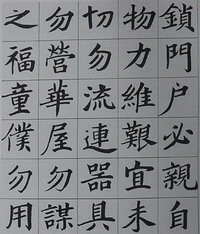 鎖門户必親自
物力維艱宜未
切勿流連器具
勿營華屋勿謀
之福童僕勿用